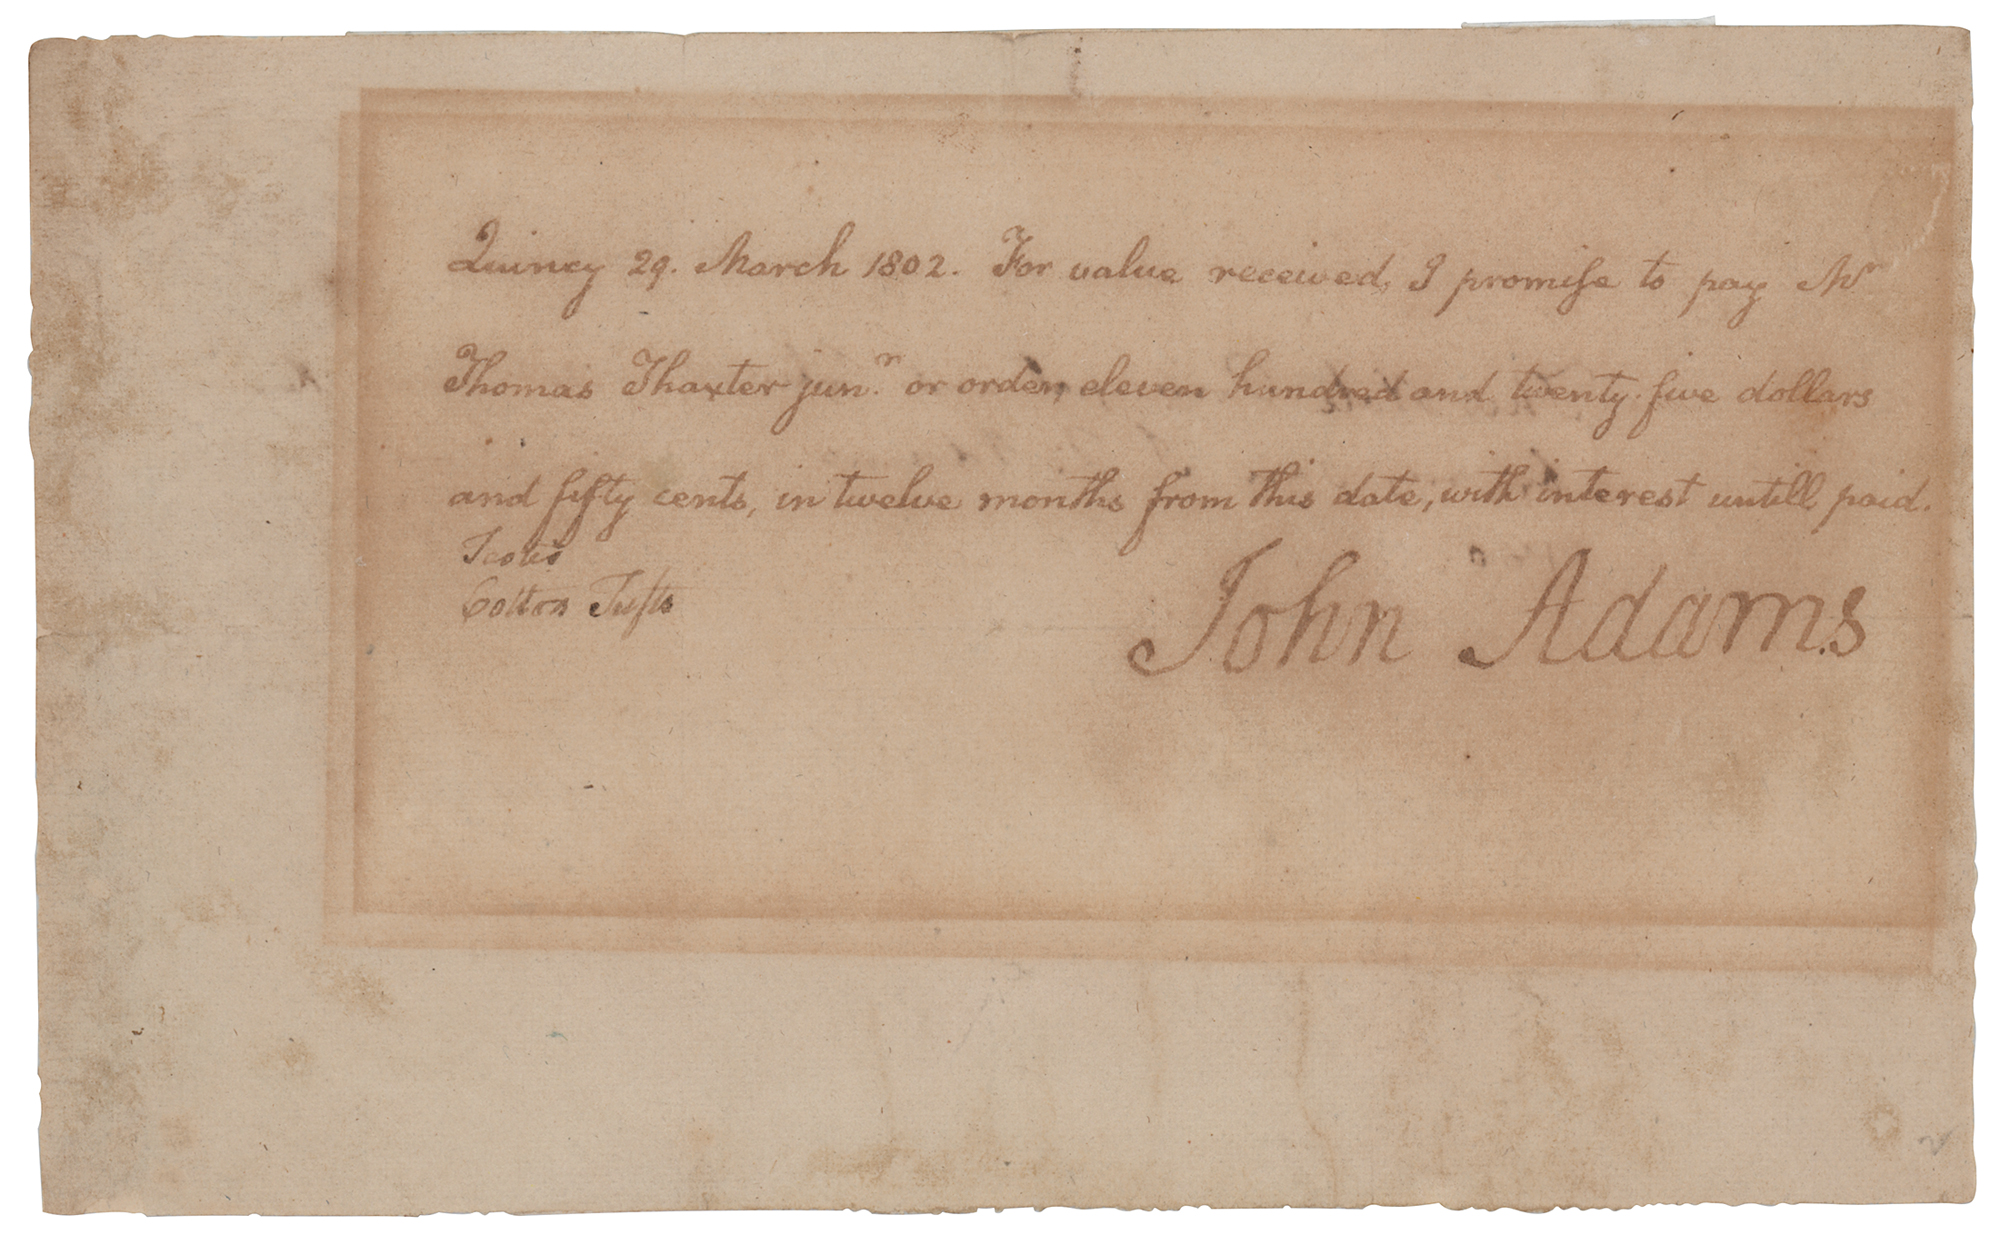 Quincy 29. March 1802. For value received, I promiſe to pay Mr
Thomas Thaxter junr. or order, eleven hundred and twenty-five dollars
and fifty cents, in twelve months from this date, with interest untill paid.
Testis
Cotton Tufts
John Adams